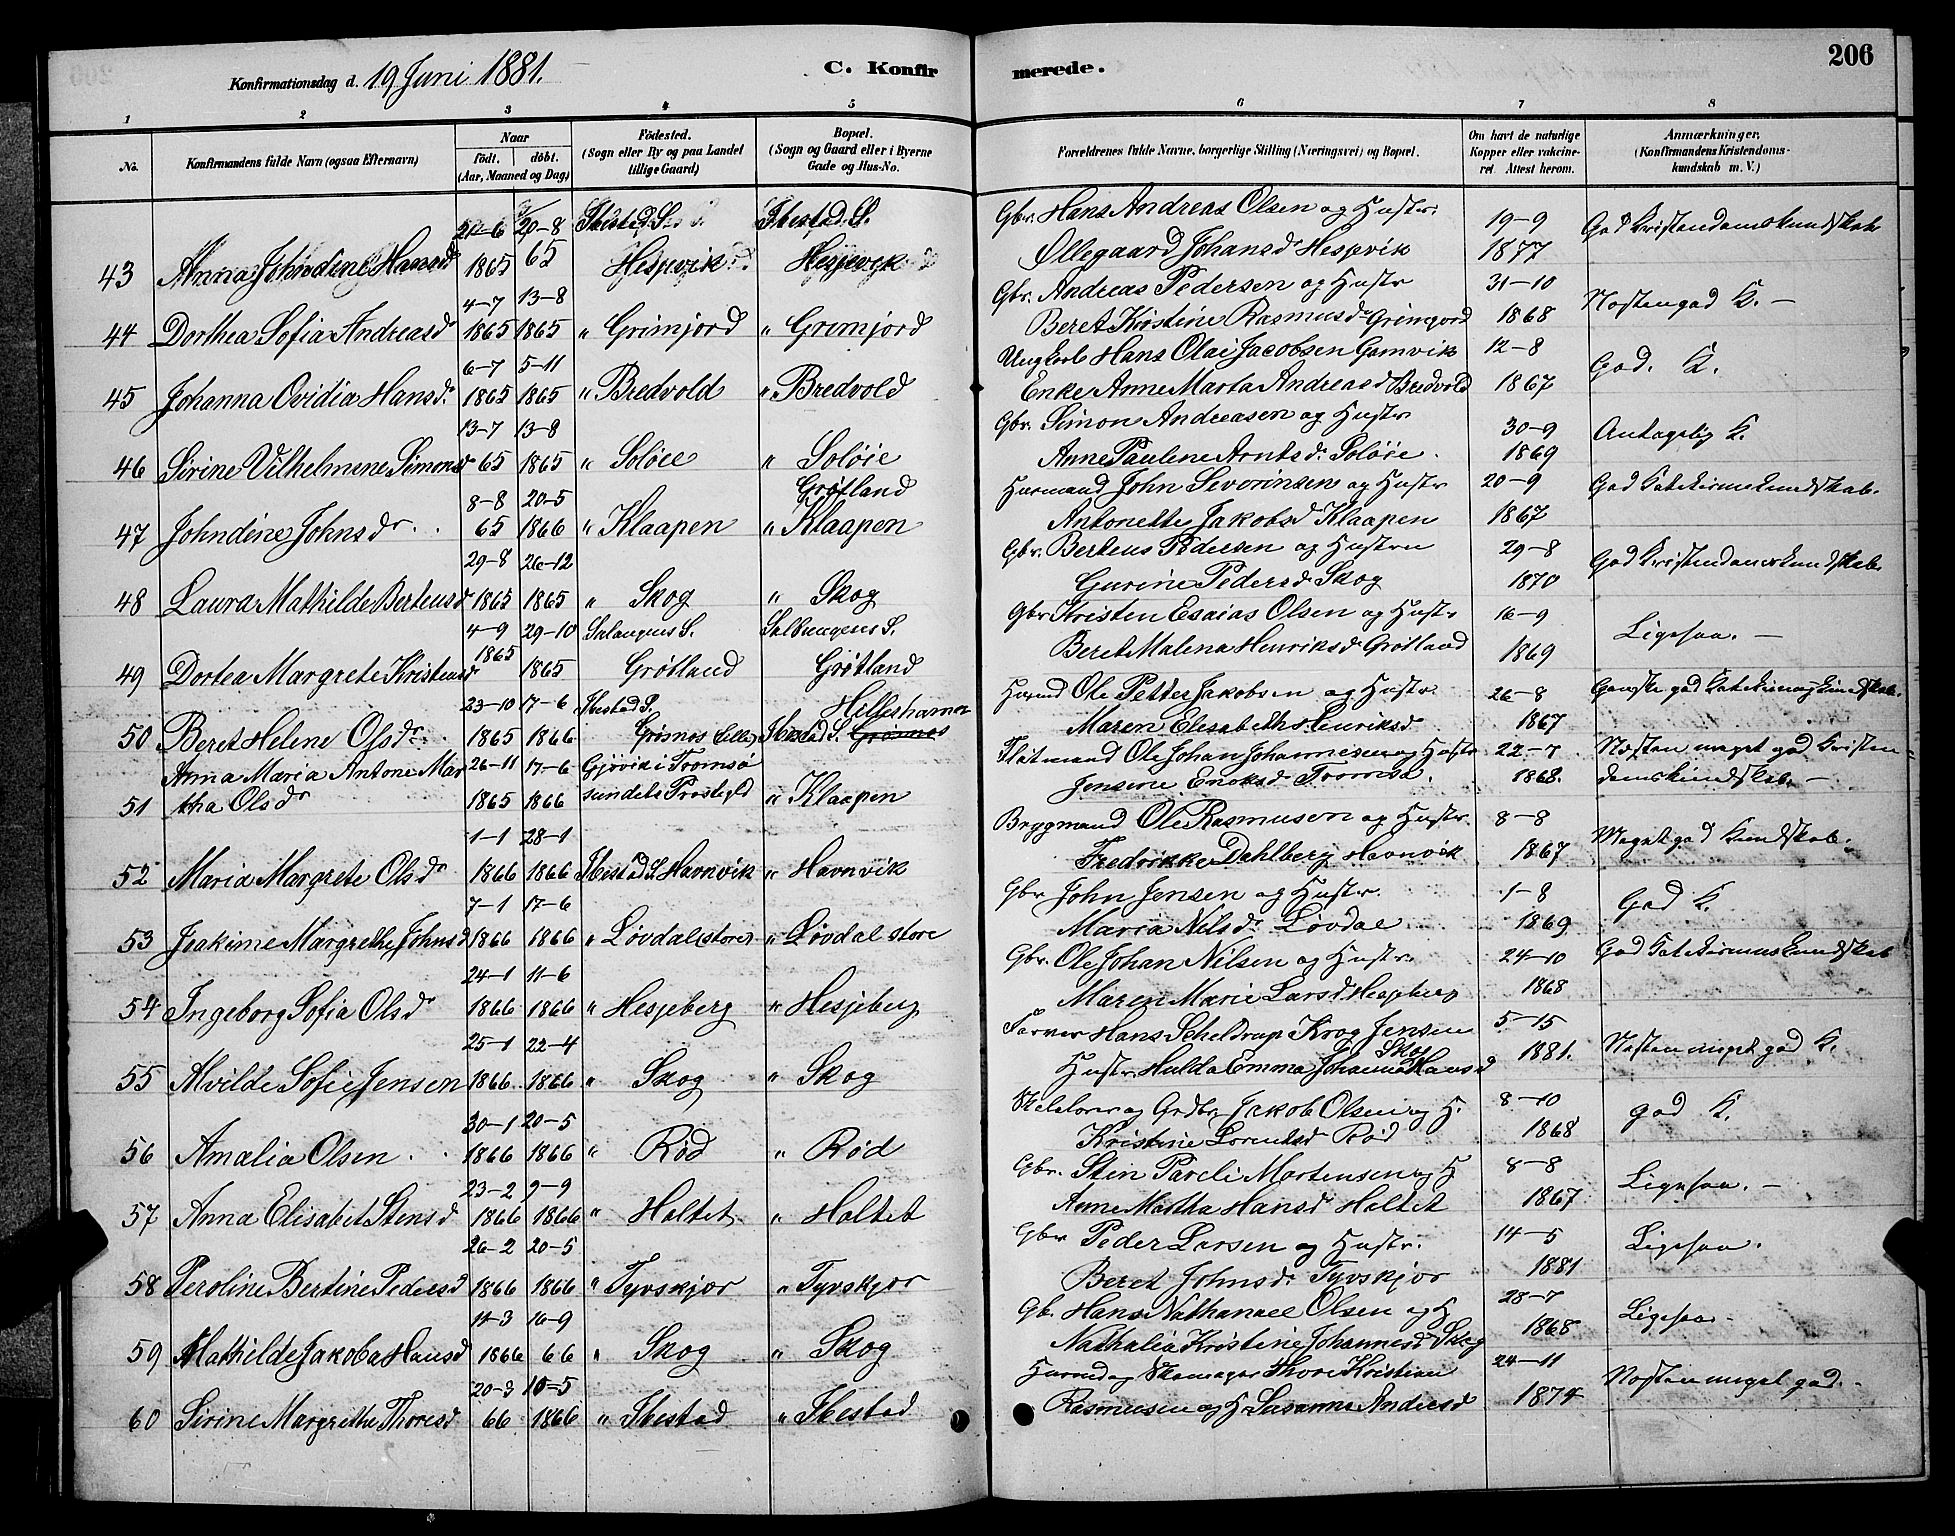 Konfirmationsdag d. 19 Juni 1881.
C. Konfirmerede.
206
1 2 3 4 5 6 7 8
No.
Konfirmandens fulde Navn (ogsaa Efternavn)
Naar
födt. döbt.
(Aar, Maaned og Dag)
Födested.
(Sogn eller By og paa Landet
tillige Gaard)
Bopæl.
(Sogn og Gaard eller i Byerne
Gade og Hus-No.
Forældrenes fulde Navne, borgerlige Stilling (Næringsvei) og Bopæl.
Om havt de naturlige
Kopper eller vakcine-
ret. Attest herom.
Anmærkninger.
(Konfirmandens Kristendoms-
kundskab m. V.)
21-6 20-8 Ibestad S. Ibestad S. Gbr. Hans Andreas Olsen og Hustr. 19-9 God Kristendomskundskab
43 Anna Johndine Hansd 1865 65 Hesjevik Hesjevik Øllegaard Johansdr Hesjevik 1877
4-7 13-8 Gbr. Andreas Pedersen og Hustr 31-10 Næsten god K. —
44 Dorthea Sofia Andreasdr 1865 1865 " Grimjord " Grimjord Beret Kirstine Rasmusdr Grimjord 1868
6-7 5-11 Ungkarl Hans Olai Jacobsen Gamvik 12-8 God. K.
45 Johanna Ovidia Hansdr 1865 1865 " Bredvold " Bredvold Enke Anne Marta Andreasd Bredvold 1867
13-7 13-8 Gbr. Simon Andreasen og Hustr 30-9 Antagelig K.
46 Sirine Vilhelmine Simonsd 65 1865 " Soløie " Soløie Anne Paulene Arntsdr. Soløie. 1869
8-8 20-5 Grøtland Husmand John Severinsen og Hustr 20-9 God Katekismekundskab.
47 Johndine Johnsdr. 65 1866 " Klaapen " Klaapen Antonette Jakobsd Klaapen 1867
29-8 26-12 Gbr. Berteus Pedersen og Hustru 29-8 God Kristendomskundskab
48 Laura Mathilde Berteusd 1865 1865 " Skog " Skog Gurine Pedersd. Skog 1870
4-9 29-10 Salangens S. Salangens S. Gbr Kristen Esaias Olsen og Hustr 16-9 Ligesaa. —
49 Dortea Margrete Kristensdr 1865 1865 Grøtland Grøtland Beret Malena Henriksd Grøtland 1869
23-10 17-6 Ibestad S. Hilleshamn Husmd Ole Petter Jakobsen og Hustr. 26-8 Ganske god Katekismuskundskab.
50 Beret Helene Olsdr. 1865 1866 Grøsnes lille Ibestad S. Grøsnes Maren Elisabeth Henriksd 1867
Anna Maria Antone Mar 26-11 17-6 Gjøvik i Tromsø Flatmand Ole Johan Johannesen og Hustr 22-7 Næsten meget god Kristen-
51 tha Olsdr 1865 1866 sundets Prestegld " Klaapen Jensine Enoksd Tromsø. 1868. domskundskab. —
1-1 28-1 Brygmand Ole Rasmusen og Hustr. 8-8 Meget god Kundskab.
52 Maria Margrete Olsdr 1866 1866 Ibestad S. Havnvik " Havnvik Fredrikke Dahlberg Havnvik 1867
7-1 17-6 Gbr John Jensen og Hustr. 1-8 God K.
53 Joakime Margrethe Johnsd 1866 1866 " Løvdal store " Løvdal store Maria Nilsdr. Løvdal 1869
24-1 11-6 Gbr. Ole Johan Nilsen og Hustr. 24-10 God Katekismuskundskab
54 Ingeborg Sofia Olsdr 1866 1866 " Hesjeberg " Hesjeberg Maren Marie Larsd Hesjeberg 1868
25-1 22-4 Farver Hans Scheldrup Krog Jensen 5-15 Næsten meget god K.
55 Alvilde Sofie Jensen 1866 1866 " Skog " Skog Hustr Hulda Emma Johanne Hansd Skog 1881.
30-1 20-5 og Grdbr Jakob Olsen og H. 8-10 god K.
56 Amalia Olsen. 1866 1866 " Rød " Rød Kristine Lorentsd Rød 1868
23-2 9-9 Gbr. Sten Pareli Mortensen og H 8-8 Ligesaa. —
57 Anna Elisabet Stensd 1866 1866 " Holtet " Holtet Anne Martha Hansd Holtet 1867
26-2 20-5 Gbr Peder Larsen og Hustr. 14-5 Ligesaa.
58 Peroline Bertine Pedersd 1866 1866 " Tyvskjær " Tyvskjær Beret Johnsdr. Tyvskjær 1881
11-3 16-9 Gb. Hans Nathanael Olsen og H 28-7 Ligesaa.
59 Mathilde Jakoba Hansd 1866 66 " Skog " Skog Nathalia Kristine Johannesd Skog 1868
20-3 10-5 Husmd og Skomager Thore Kristian 24-11 Næsten meget god.
60 Sirine Margrethe Thoresd 66 1866 " Ibestad " Ibestad Rasmusen og H Susanna Andersd 1874